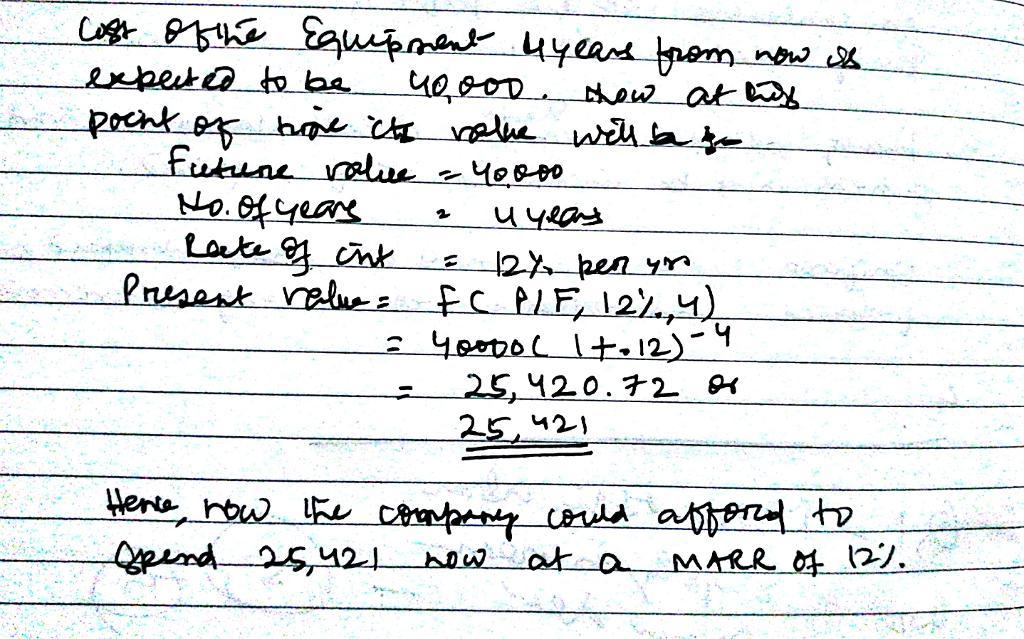 Cost of the Equipment 4 years from now is
expected to be 40,000. Now at this
point of time its value will be :-
Future value = 40,000
No. of years = 4 years
Rate of int = 12% per yr
Present value = F ( P/F, 12%, 4)
= 40000( 1+.12)-4
= 25,420.72 or
25,421
Hence, now the company could afford to
Spend 25,421 now at a MARR of 12%.